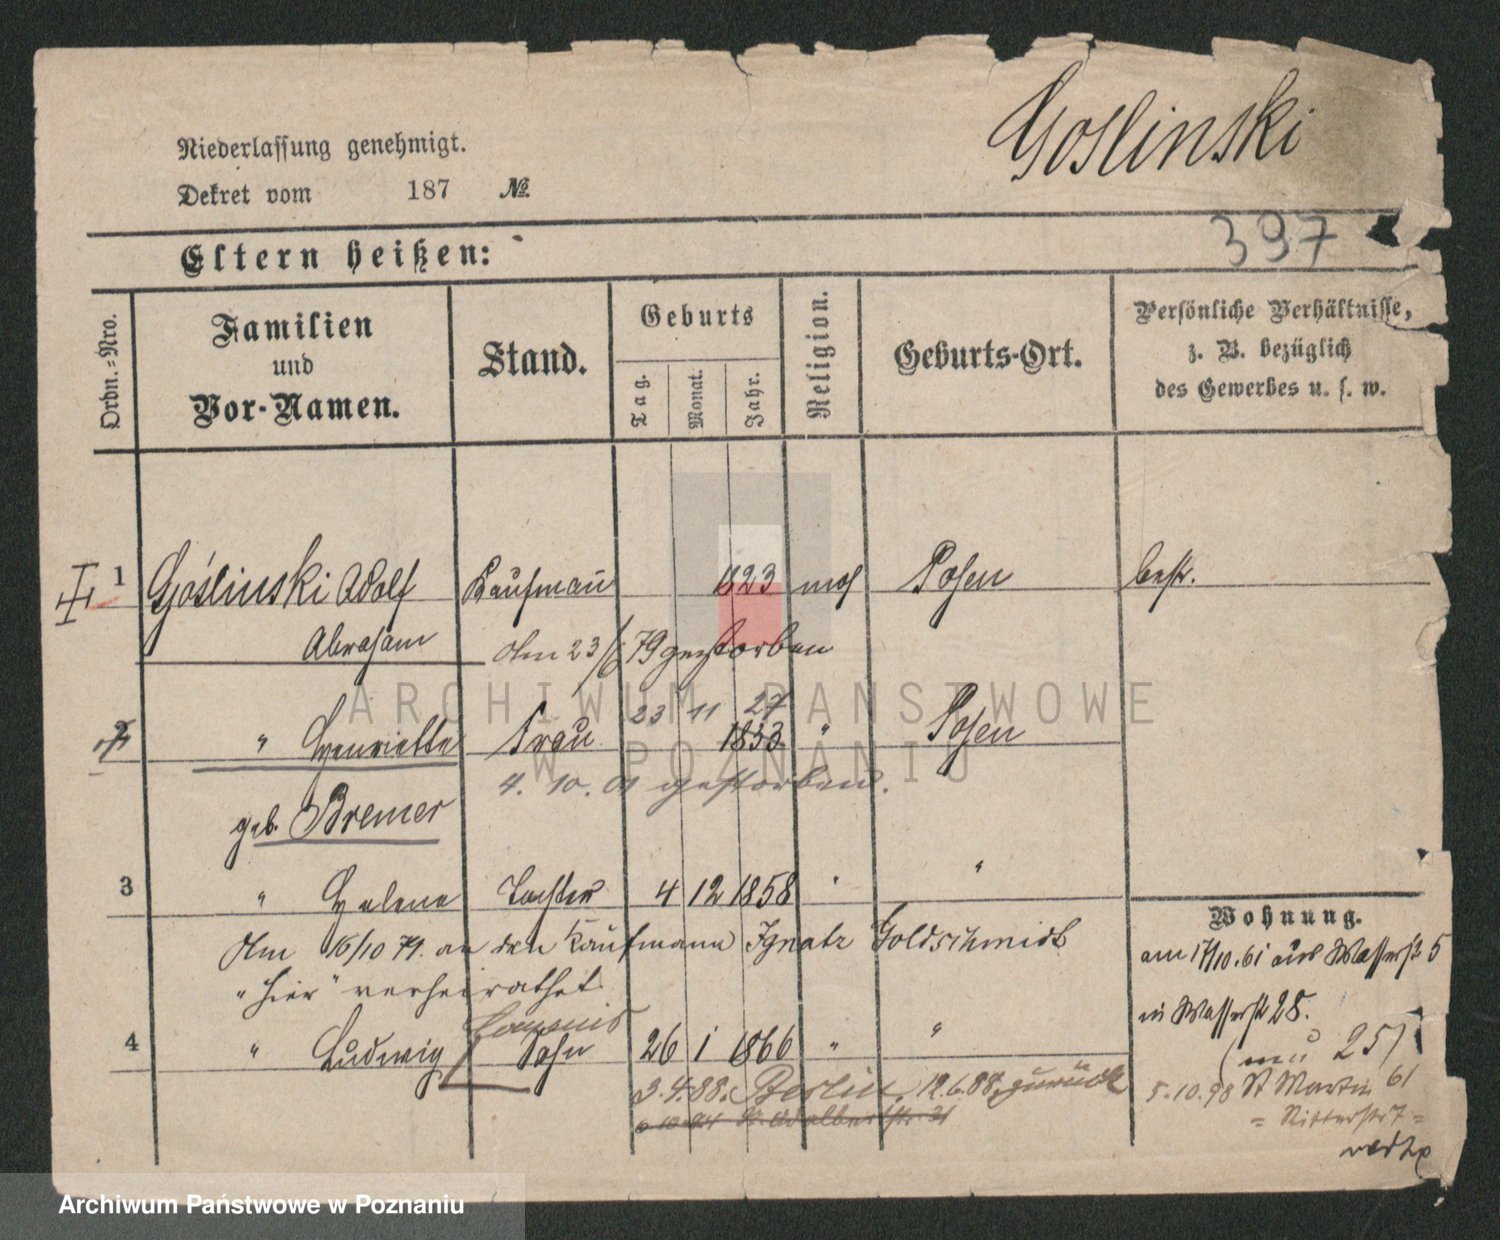 Goslinski
Niederlassung genehmigt.
Dekret vom 187 №
397
Eltern heißen:
Ordn.-Nro.
Familien und Vor-Namen.
Stand.
Geburts
Tag.
Monat.
Jahr.
Religion.
Geburts-Ort.
Persönliche Verhältnisse,
z. B. bezüglich
des Gewerbes u. s. w.
1 Góslinski Adolf Kaufmann 1823 mos Posen
Abraham Am 23/6 79 gestorben
23 11 27
2 " Henriette Frau 1833 " Posen
4. 10. 01 gestorben.
geb. Bremer
3 " Helene Tochter 4 12 1858 " "
Am 16/10 79. an den Kaufmann Ignatz Goldschmidt
"hier" verheirathet.
Commis
4 " Ludwig Sohn 26 1 1866 " "
3.4.88. Berlin. 12.6.88. zurück
St. Adalbertstr. 31
Wohnung.
am 17/10.61 aus Wasserstr 5
in Wasserstr 28.
(neu 25)
5.10.98 St Martin 61
= Ritterstr 7 =
ARCHIWUM PAŃSTWOWE
W POZNANIU
Archiwum Państwowe w Poznaniu